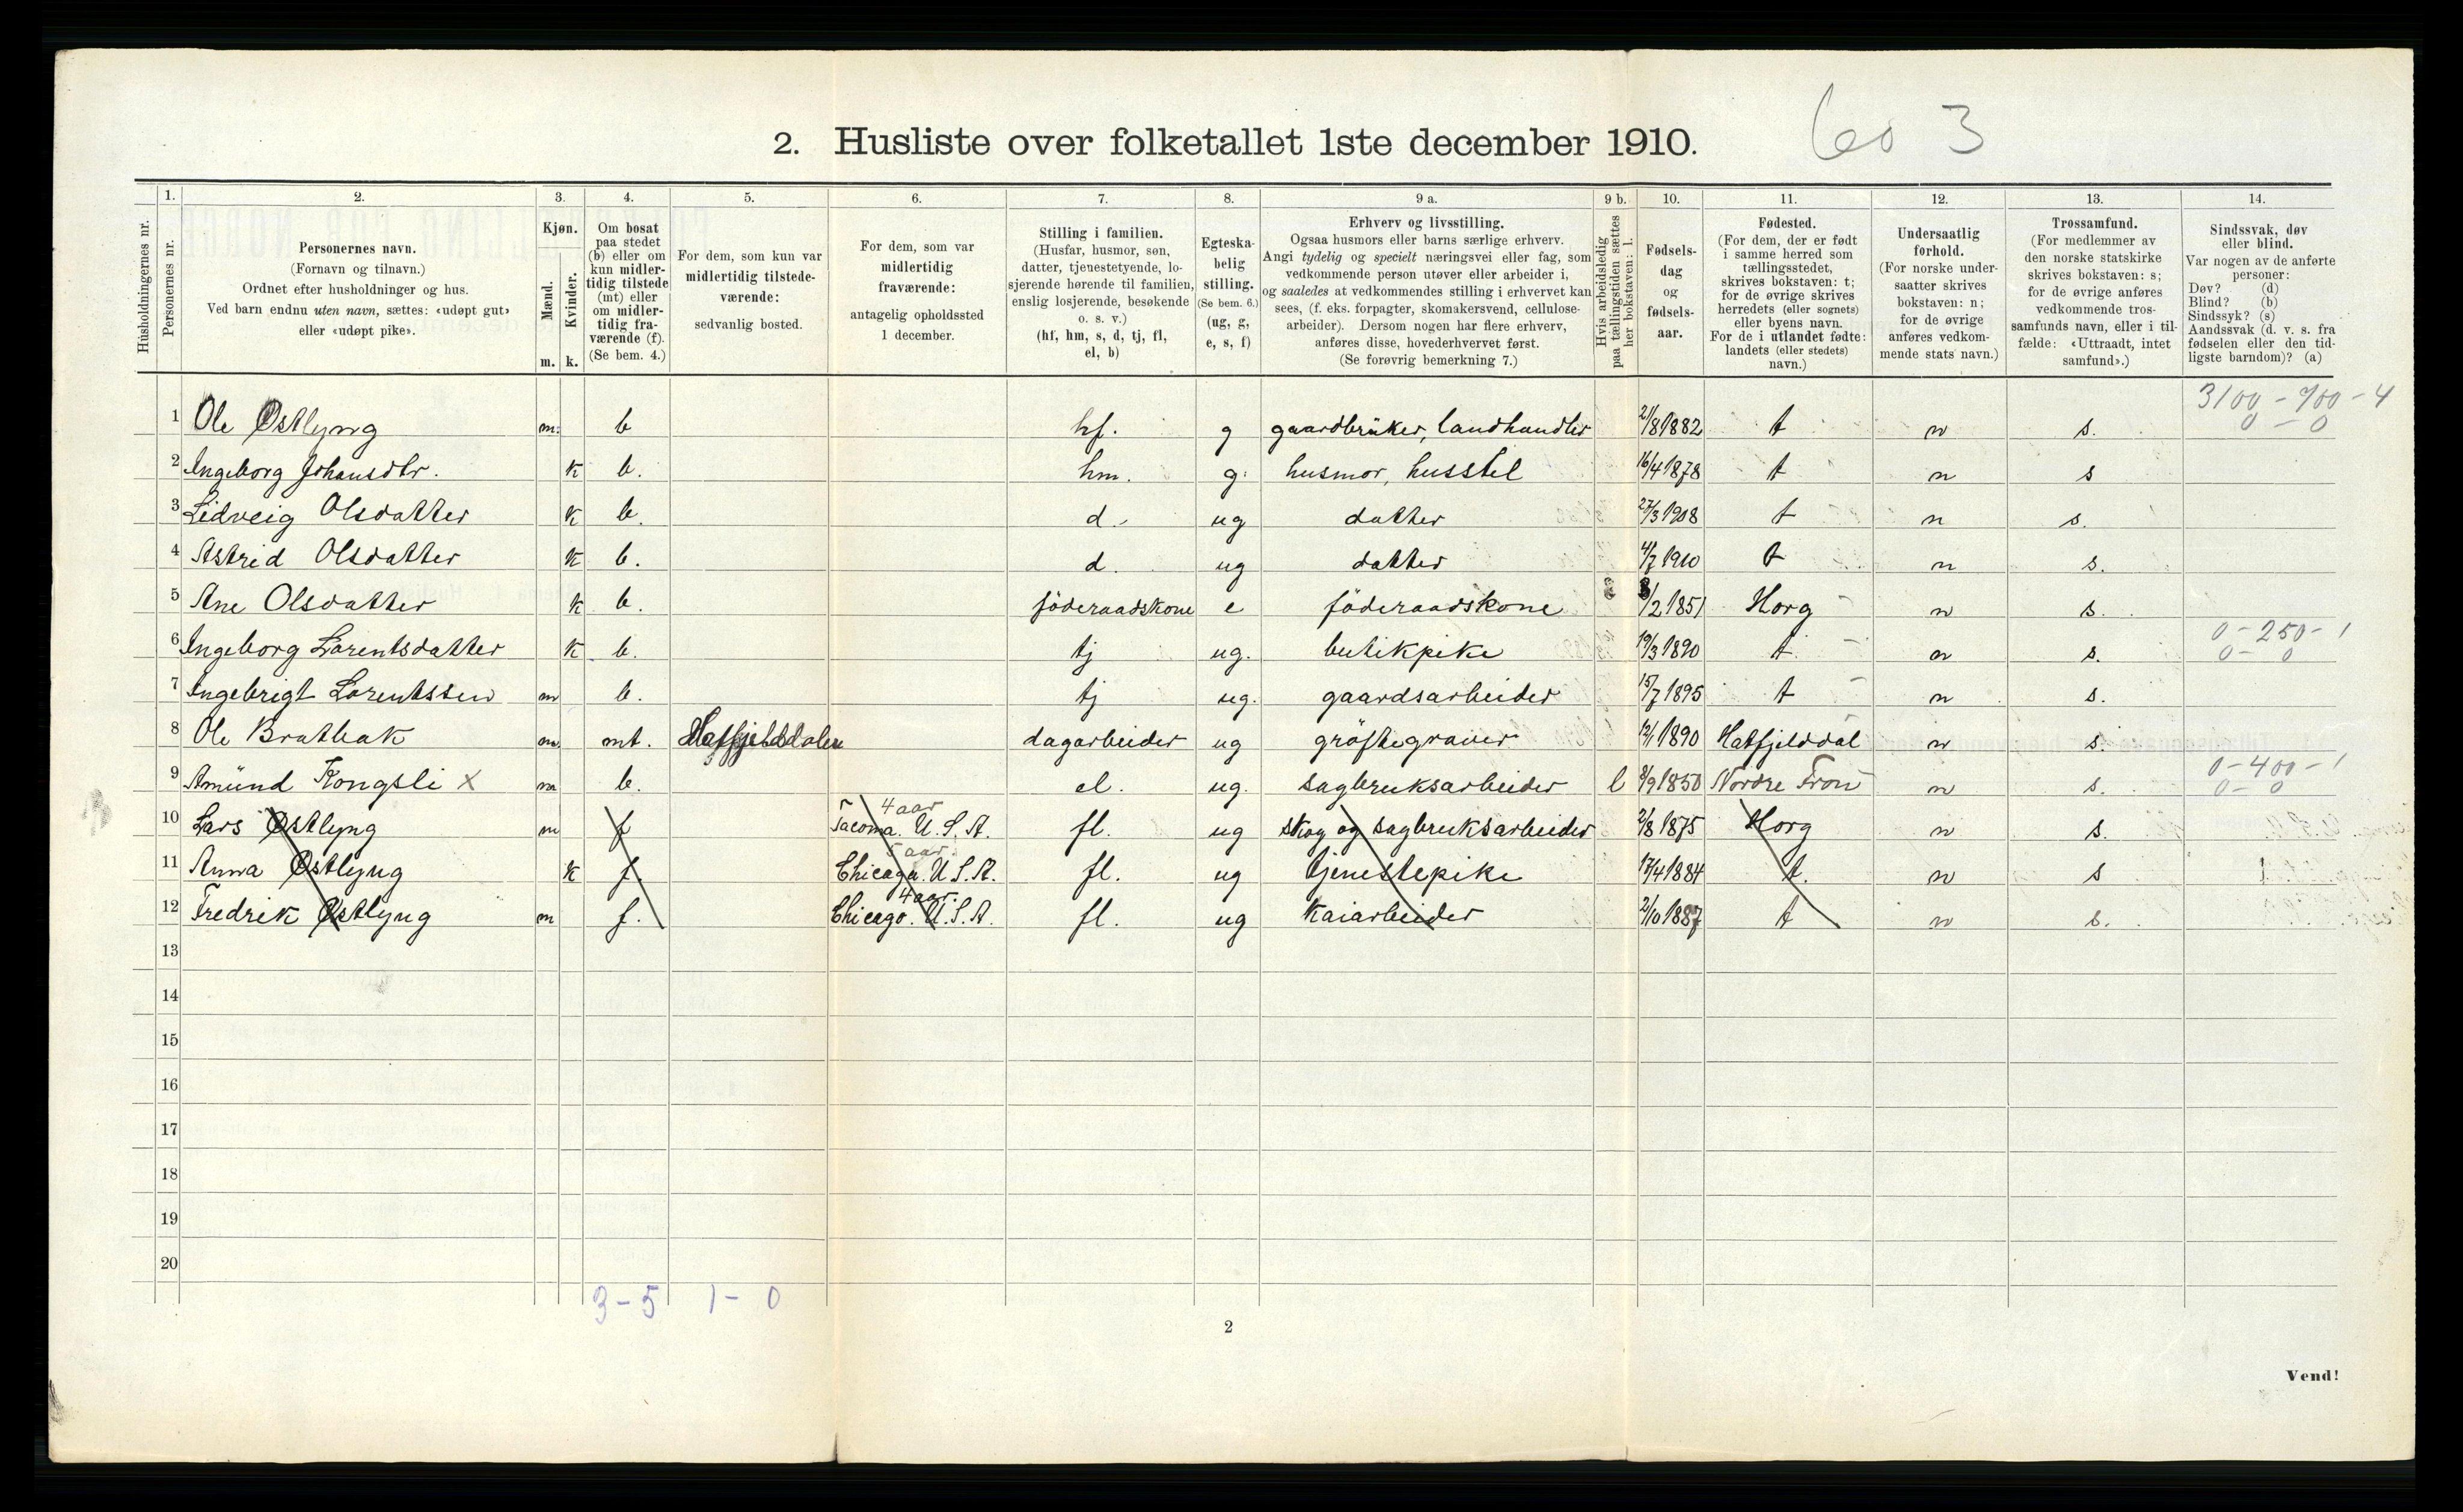 2. Husliste over folketallet 1ste december 1910.
60 3
1. 2. 3. 4. 5. 6. 7. 8. 9 a. 9 b. 10. 11. 12. 13. 14.
Husholdningernes nr.
Personernes nr.
Personernes navn.
(Fornavn og tilnavn.)
Ordnet efter husholdninger og hus.
Ved barn endnu uten navn, sættes: «udøpt gut»
eller «udøpt pike».
Kjøn.
Mænd.
Kvinder.
m. k.
Om bosat
paa stedet
(b) eller om
kun midler-
tidig tilstede
(mt) eller
om midler-
tidig fra-
værende (f).
(Se bem. 4.)
For dem, som kun var
midlertidig tilstede-
værende:
sedvanlig bosted.
For dem, som var
midlertidig
fraværende:
antagelig opholdssted
1 december.
Stilling i familien.
(Husfar, husmor, søn,
datter, tjenestetyende, lo-
sjerende hørende til familien,
enslig losjerende, besøkende
o. s. v.)
(hf, hm, s, d, tj, fl,
el, b)
Egteska-
belig
stilling.
(Se bem. 6.)
(ug, g,
e, s, f)
Erhverv og livsstilling.
Ogsaa husmors eller barns særlige erhverv.
Angi tydelig og specielt næringsvei eller fag, som
vedkommende person utøver eller arbeider i,
og saaledes at vedkommendes stilling i erhvervet kan
sees, (f. eks. forpagter, skomakersvend, cellulose-
arbeider). Dersom nogen har flere erhverv,
anføres disse, hovederhvervet først.
(Se forøvrig bemerkning 7.)
Hvis arbeidsledig
paa tællingstiden sættes
her bokstaven: l.
Fødsels-
dag
og
fødsels-
aar.
Fødested.
(For dem, der er født
i samme herred som
tællingsstedet,
skrives bokstaven: t;
for de øvrige skrives
herredets (eller sognets)
eller byens navn.
For de i utlandet fødte:
landets (eller stedets)
navn.)
Undersaatlig
forhold.
(For norske under-
saatter skrives
bokstaven: n;
for de øvrige
anføres vedkom-
mende stats navn.)
Trossamfund.
(For medlemmer av
den norske statskirke
skrives bokstaven: s;
for de øvrige anføres
vedkommende tros-
samfunds navn, eller i til-
fælde: «Uttraadt, intet
samfund».)
Sindssvak, døv
eller blind.
Var nogen av de anførte
personer:
Døv? (d)
Blind? (b)
Sindssyk? (s)
Aandssvak (d. v. s. fra
fødselen eller den tid-
ligste barndom)? (a)
3100 - 700 - 4
1 Ole Østlyng m. b hf. g gaardbruker, landhandler 21/8 1882 t n s. 0 - 0
2 Ingeborg Johansdtr. k b. hm. g. husmor, husstel 16/4 1878 t n s
3 Lidveig Olsdatter k b. d. ug datter 27/3 1908 t n s.
4 Astrid Olsdatter k b. d. ug datter 4/7 1910 t n s.
5 Ane Olsdatter k b. föderaadskone e föderaadskone 3/2 1851 Horg n s.
0 - 250 - 1
6 Ingeborg Larentsdatter k b. tj ug. butikpike 19/3 1890 t n s. 0 - 0
7 Ingebrigt Lorentssen m b. tj ug. gaardsarbeider 15/7 1895 t n s.
8 Ole Bratbak m mt. Hatfjelddalen dagarbeider ug gröftegraver 12/1 1890 Hatfjelddal n s.
0 - 400 - 1
9 Amund Kongsli x m b. el. ug. sagbruksarbeider l 8/9 1850 Nordre Fron n s. 0 - 0
4 aar
10 Lars Østlyng m f Tacoma. U.S.A. fl. ug skog og sagbruksarbeider 2/8 1875 Horg n s.
5 aar
11 Anna Østlyng k f. Chicago. U.S.A. fl. ug tjenestepike 17/4 1884 t. n s
4 aar.
12 Fredrik Østlyng m f. Chicago. U.S.A. fl. ug Kaiarbeider 2/10 1887 t n s.
13
14
15
16
17
18
19
20
3 - 5 1 - 0
2
Vend!